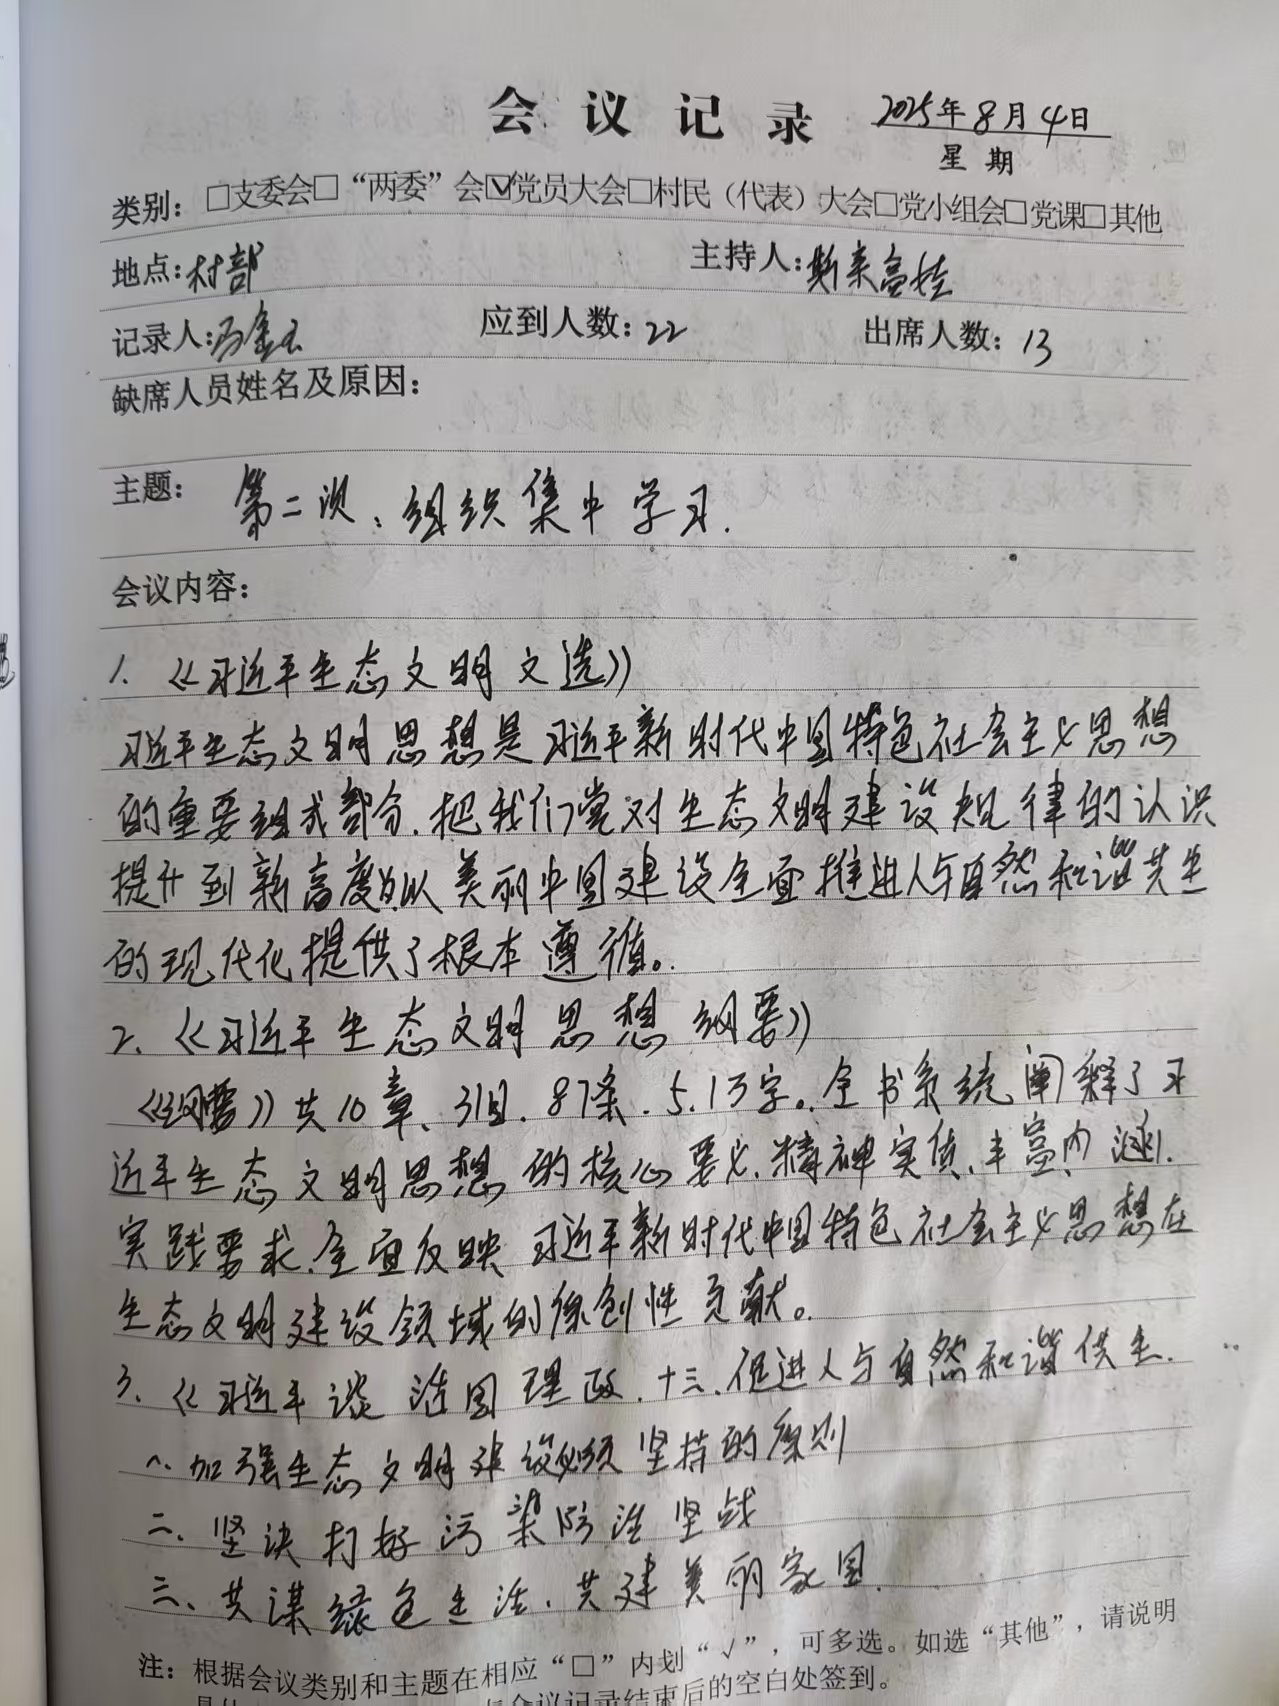 会议记录 2025年8月4日
星期
类别：□支委会□“两委”会☑党员大会□村民（代表）大会□党小组会□党课□其他
地点：村部 主持人：斯来高娃
记录人：冯金玉 应到人数：22 出席人数：13
缺席人员姓名及原因：
主题： 第二次：组织集中学习.
会议内容：
1、《习近平生态文明文选》
习近平生态文明思想是习近平新时代中国特色社会主义思想
的重要组成部分.把我们党对生态文明建设规律的认识
提升到新高度为以美丽中国建设全面推进人与自然和谐共生
的现代化提供了根本遵循。
2、《习近平生态文明思想纲要》
《纲要》共10章、31目.87条.5.1万字。全书系统阐释了习
近平生态文明思想的核心要义.精神实质、丰富内涵.
实践要求.全面反映习近平新时代中国特色社会主义思想在
生态文明建设领域的原创性贡献。
3、《习近平谈治国理政.十三、促进人与自然和谐供生.
一、加强生态文明建设必须坚持的原则
二、坚决打好污染防治坚战
三、共谋绿色生活.共建美丽家园.
注：根据会议类别和主题在相应“□”内划“√”，可多选。如选“其他”，请说明
会议记录结束后的空白处签到。